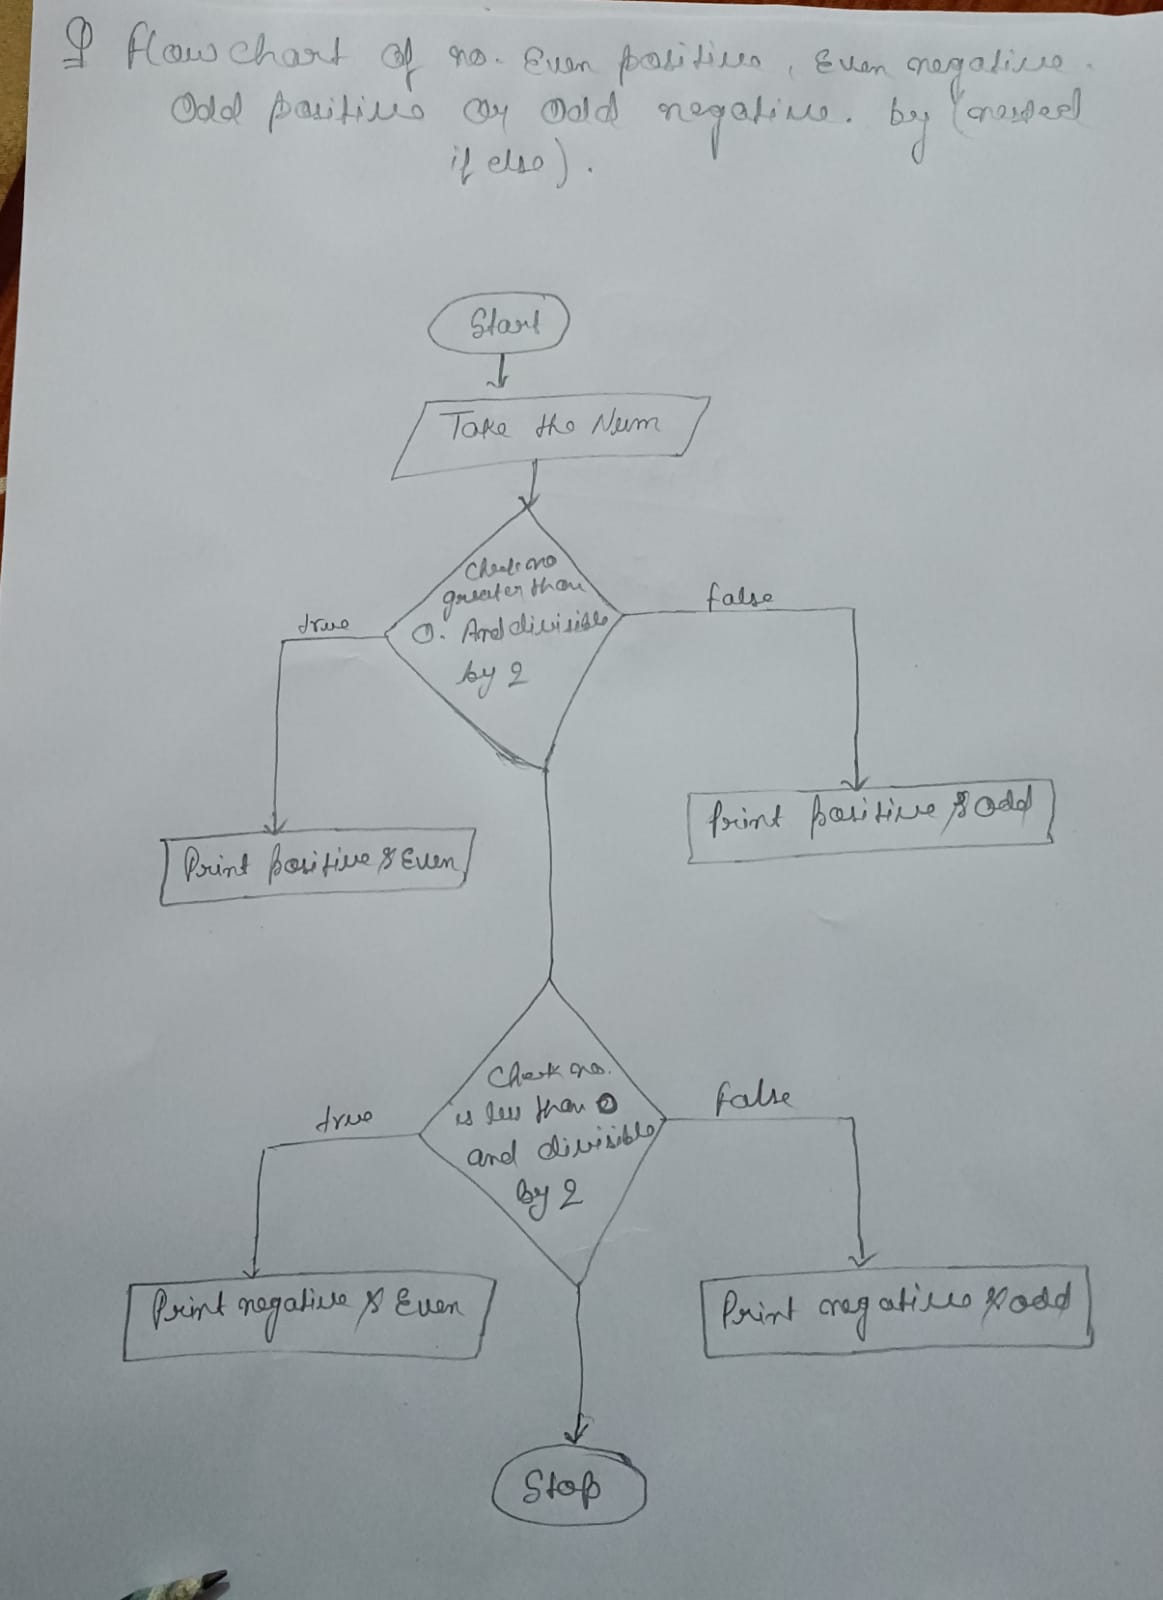 Q Flowchart of no. Even positive, Even negative.
Odd positive or Odd negative. by (nested
if else).
Start
Take the Num
Check no
greater than
0. And divisible
by 2
true
false
Print positive & Even
Print positive & Odd
Check no.
is less than 0
and divisible
by 2
true
false
Print negative & Even
Print negative & odd
Stop